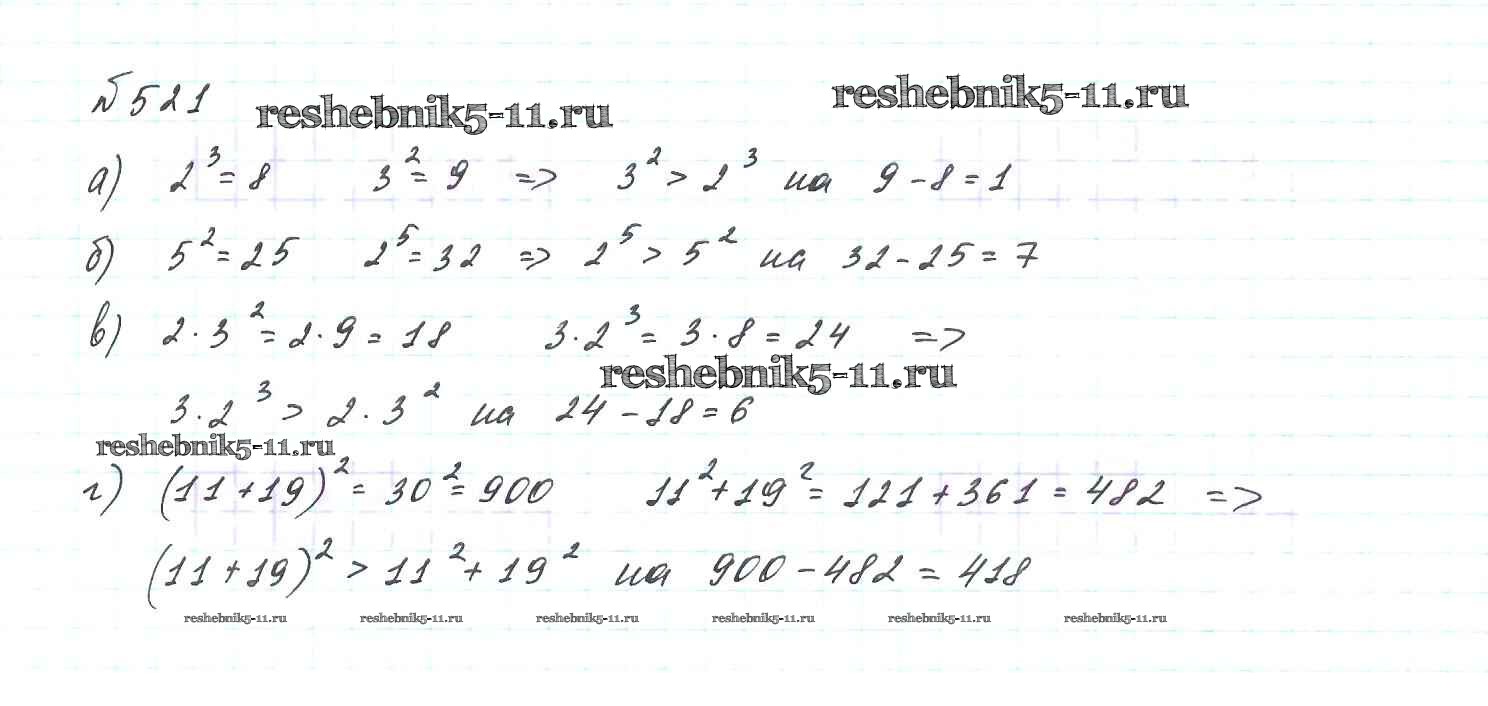 №521
reshebnik5-11.ru
reshebnik5-11.ru
а) 2³ = 8 3² = 9 => 3² > 2³ на 9 - 8 = 1
б) 5² = 25 2⁵ = 32 => 2⁵ > 5² на 32 - 25 = 7
в) 2 · 3² = 2 · 9 = 18 3 · 2³ = 3 · 8 = 24 =>
reshebnik5-11.ru
3 · 2³ > 2 · 3² на 24 - 18 = 6
reshebnik5-11.ru
г) (11 + 19)² = 30² = 900 11² + 19² = 121 + 361 = 482 =>
(11 + 19)² > 11² + 19² на 900 - 482 = 418
reshebnik5-11.ru reshebnik5-11.ru reshebnik5-11.ru reshebnik5-11.ru reshebnik5-11.ru reshebnik5-11.ru